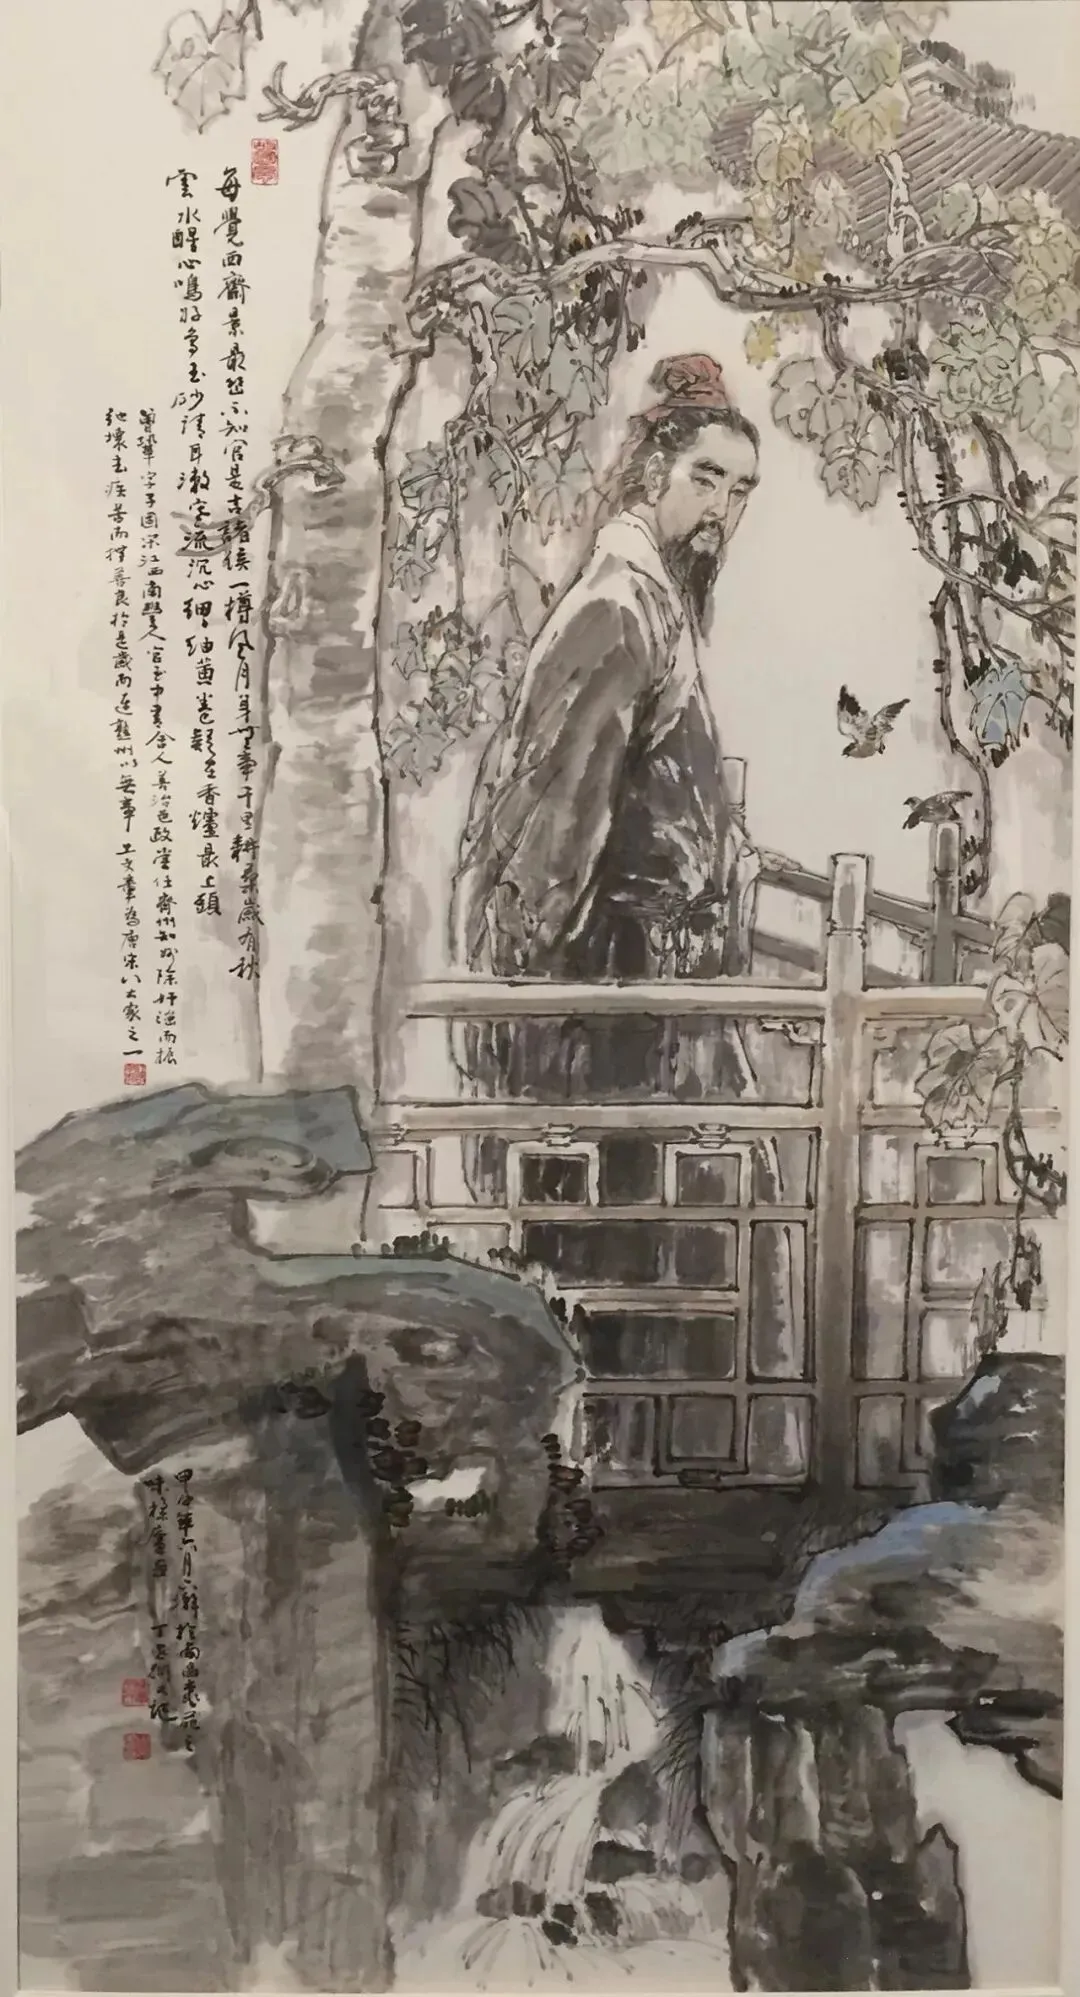 每覺西齋景最幽不知官是古諸侯一樽风月身無事千里耕桑歲有秋
雲水醒心鳴好鳥玉砂清耳漱寒流沉心細細紬黄卷疑在香爐最上頭
曾鞏字子固宋江西南豐人官至中書舍人善治邑政嘗任齊州知州除奸強而振
弛壞去疾苦而善良於是歲而連州以無事工文章為唐宋八大家之一
甲申年六月於南昌苑之
丁記